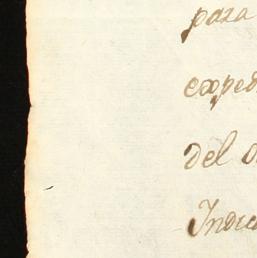 para
exped
del
Indi